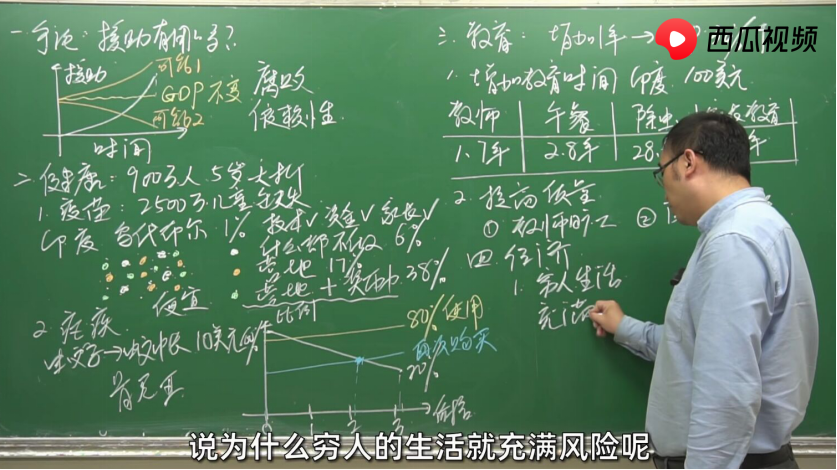 一 导论：援助有用吗？
援助
可能1
GDP不变
可能2
时间
腐败
依赖性
二 健康：900万人 5岁夭折
1. 疫苗：2500万儿童
印度 乌代布尔 1%
技术√ 资金√ 家长√
什么都不做 6%
营地 17%
营地+实物 38%
便宜
2. 疟疾
肯尼亚
比例
80%使用
再次购买
20%
价格
0 1 2 3
三. 教育：增加1年→
1. 增加教育时间 印度 100美元
教师
午餐
除虫
教育
1.7年
2.8年
28.
年
2. 提高质量
①
②
四 经济
1. 穷人生活
充满
西瓜视频
说为什么穷人的生活就充满风险呢